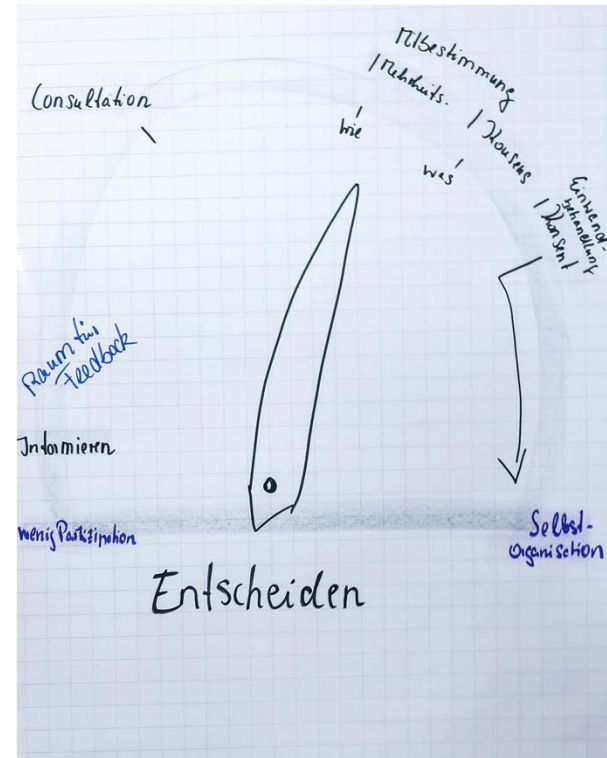 Consultation
Mitbestimmung
| Mehrheits-
| Konsens
Einwand-
behandlung
| Konsent
wie
was
Raum für
Feedback
Informieren
wenig Partizipation
Selbst-
Organisation
Entscheiden